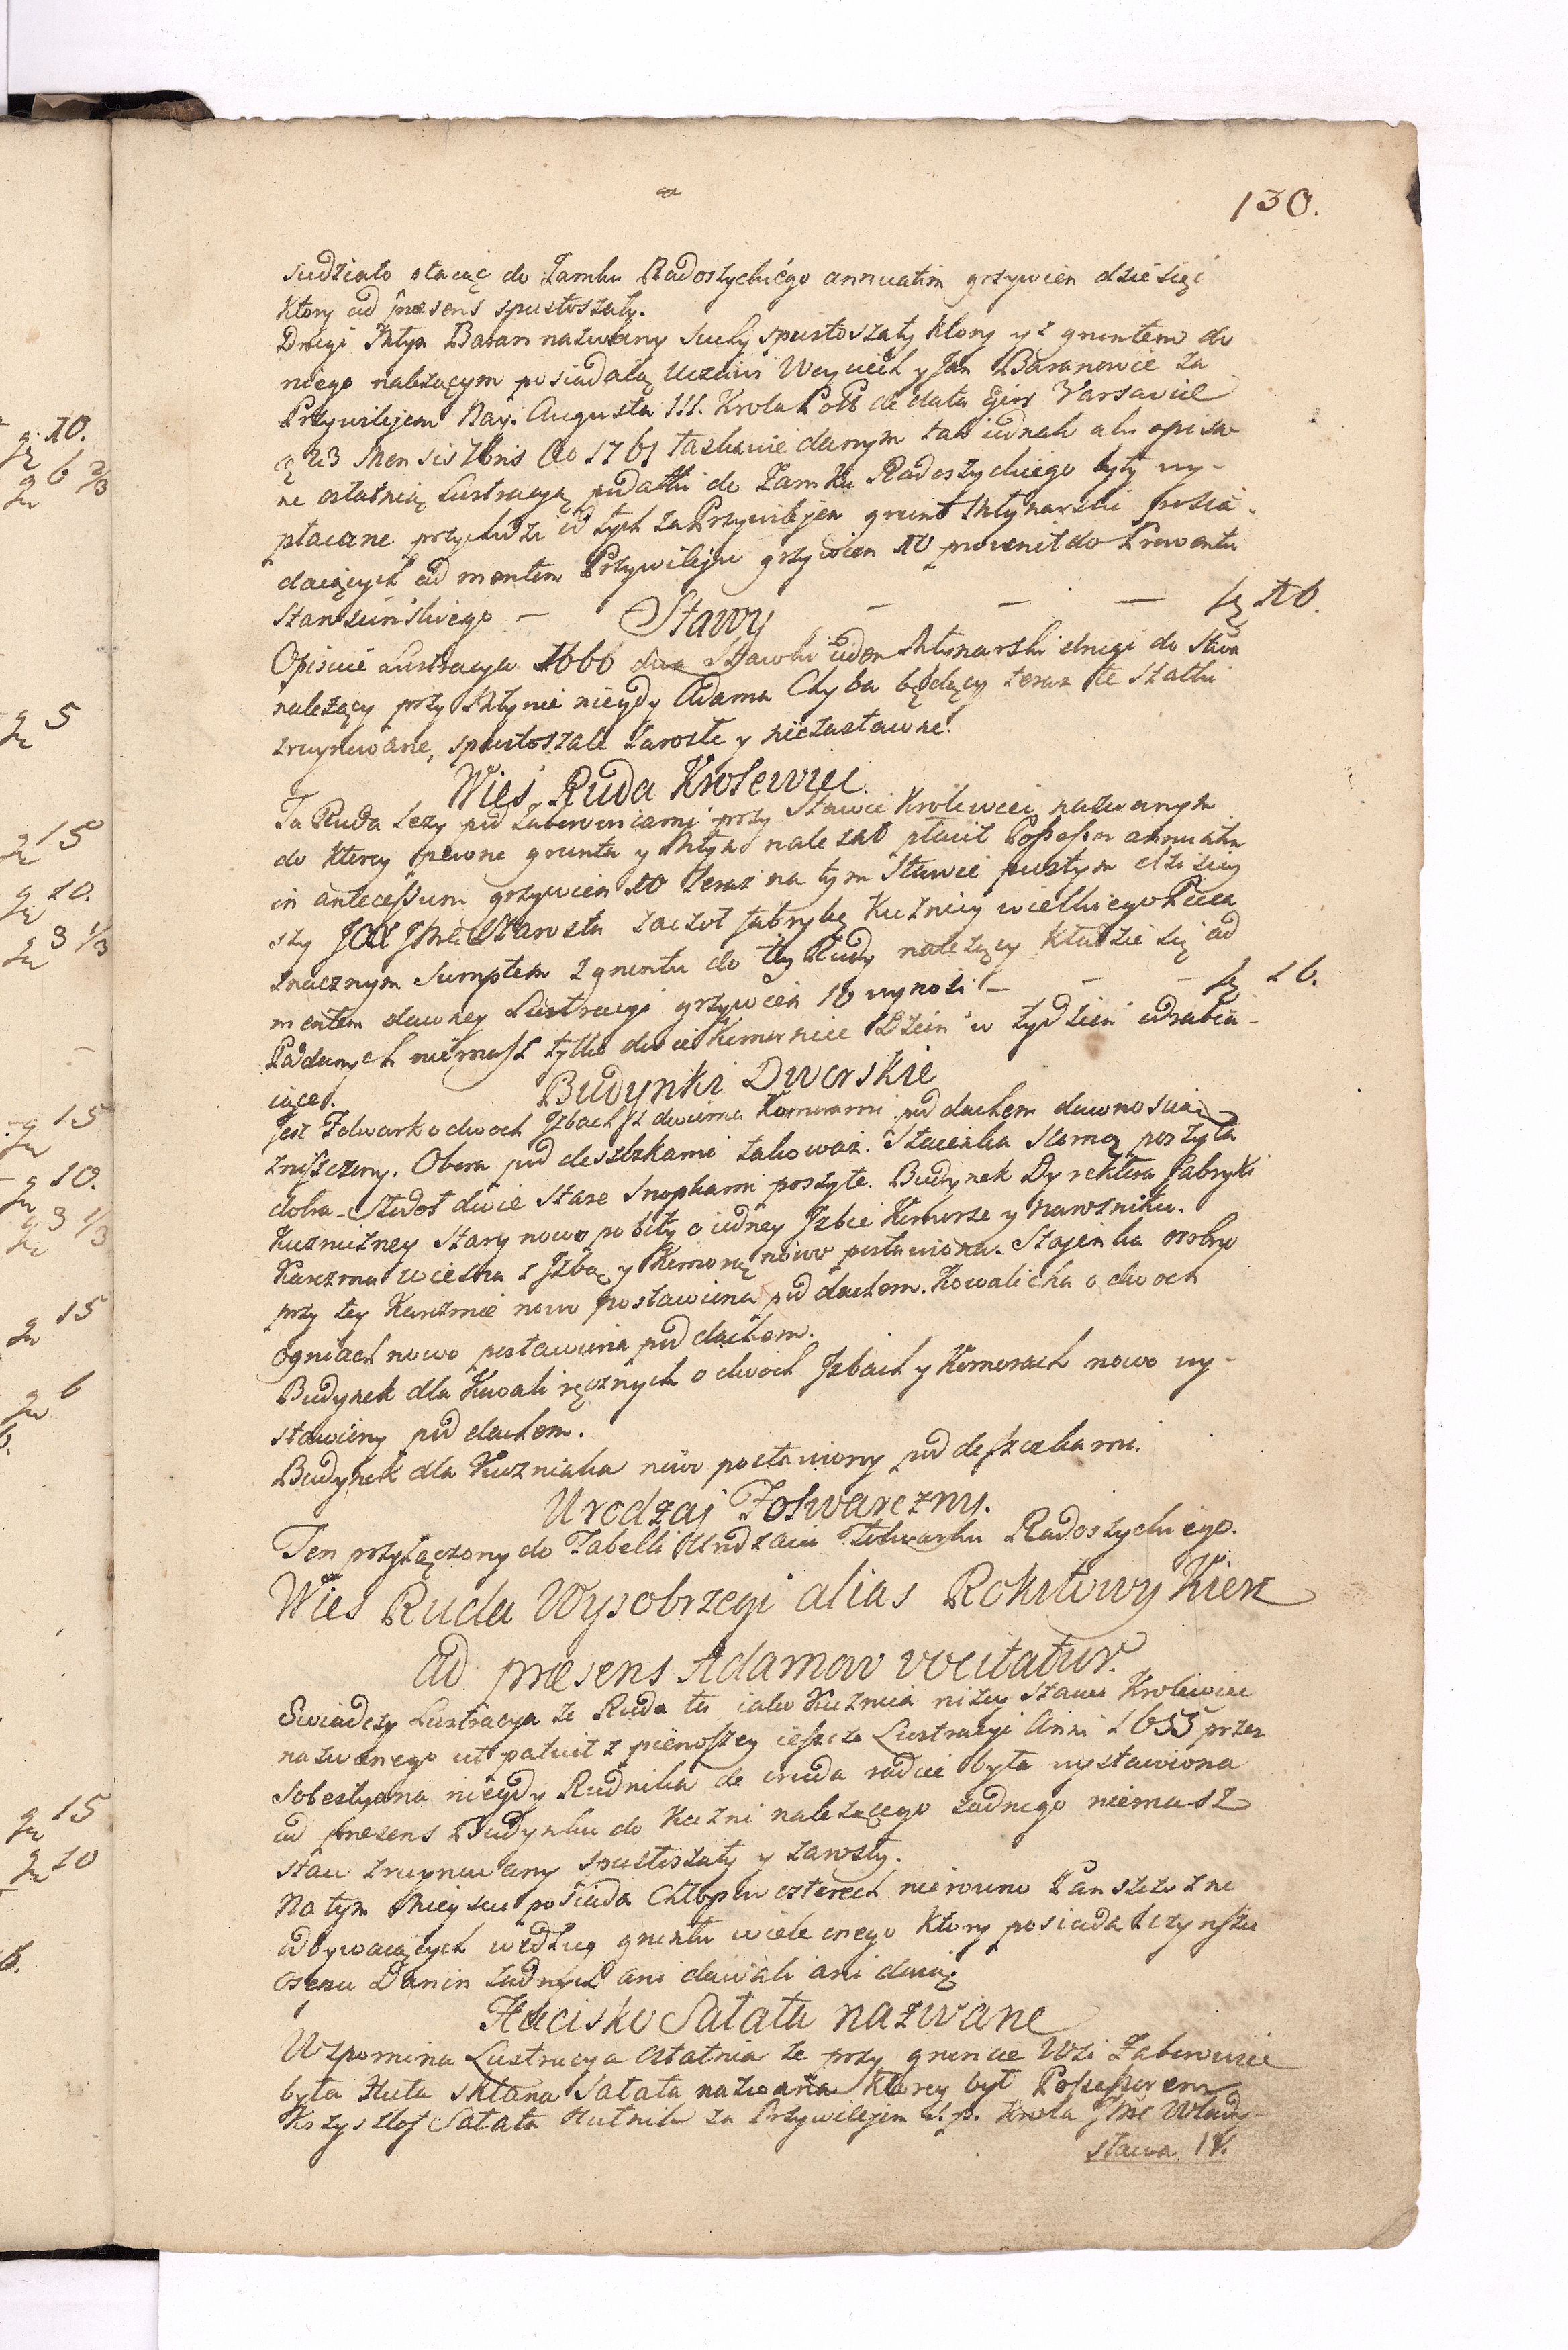 130.
siedziało płacić do Zamku Radoszyckiego annuatim grzywien dziesięć
Ktory ad præsens spustoszały.
Drugi Młyn Baran nazwany suchy spustoszały Ktory y z gruntem do
niego należącym posiadaią Uczciwi Woyciech y Jan Baranowie za
Przywilejem Nay. Augusta III. Krola Pols de data Ejus Varsaviæ
23 Mensis Xbris Ao 1761 łaskawie danym tak iednak ale opisa-
ne ostatnią Lustracyą podatki do Zamku Radoszyckiego były wy-
płacane przychodzi od tych za Przywilejem grunt Młynarski posia-
daiących ad mentem Przywileju grzywien 10 provenit do Prowentu
Starościńskiego — — — — fl 16.
Stawy
Opisuie Lustracya 1660 dwa Stawki ieden Młynarski drugi do Stwa
należący przy Młynie niegdy Adama Chyba będący teraz te Stawki
zruynowane, spustoszałe zarosłe y niezastawne.
Wieś Ruda Krolewiec.
Ta Ruda leży pod Zaborowicami przy Stawie Krolewiec nazwanym
do Ktorey pewne grunta y Młyn należał płacił Possessor annuatim
in antecessum grzywien 10 teraz na tym Stawie pustym dzisiey
szy Starosta zaczoł fabrykę Kuźnicy wielkiego Pieca
znacznym Sumptem z gruntu do tey Rudy należący Kładzie się ad
mentem dawney Lustracyi grzywien 10 wynosi — — — fl 16.
Poddanych niemasz tylko dwie Komornice Dzień w tydzień odrabia-
iące.
Budynki Dworskie
Jest Folwark o dwoch Izbach z dwiema Komorami pod dachem dawnością
zniszczony. Obora pod deszczkami takoważ. Staienka Słomą poszyta
dobra. Stodoł dwie stare Snopkami poszyte. Budynek Dyrektora fabryki
Kuzniczney Stary nowo pobity o iedney Izbie Komorze y
Karczma wiezdna z Izbą y Komorą nowo postawiona. Stajenka osobno
przy tey Karczmie nowo postawiona pod dachem. Kowalicha o dwoch
ogniach nowo postawiona pod dachem.
Budynek dla Kowali ręcznych o dwoch Izbach y Komorach nowo wy-
stawiony pod dachem.
Budynek dla Kuzniaka nowo postawiony pod deszczkami.
Urodzaj Folwarczny.
Ten przyłączony do Tabelli Urodzaiu Folwarku Radoszyckiego.
Wies Ruda Wysobrzegi alias Rokitowy Kierz
ad præsens Adamow vocitatur.
Swiadczy Lustracya że Ruda ta iako Kuznica niżey Stawu Krolewiec
nazwanego ut patuit z pierwszey ieszcze Lustracyi Anni 1655 przez
Sobestyana niegdy Rudnika de cruda radice była wystawiona
ad præsens Budynku do Kuzni należącego żadnego niemasz
staw zruynowany spustoszały y zarosły.
Na tym Mieyscu posiada Chłopow czterech nierowno Panszczyznę
odbywaiących według gruntu wiele onego Ktory posiada Czynszu
Osepu Danin żadnych ani dawali ani daią.
Hucisko Sałata nazwane
Wspomina Lustracya Ostatnia że przy gruncie Wsi Zaborowice
była Huta sklana Sałata nazwana Ktorey był Possessorem
Krzysztof Sałata Hutnik za Przywilejem S. p. Krola Jmć Włady-
sława IV.
10.
6 2/3
5
15
10.
3 1/3
15
10.
3 1/3
15
6
15
10